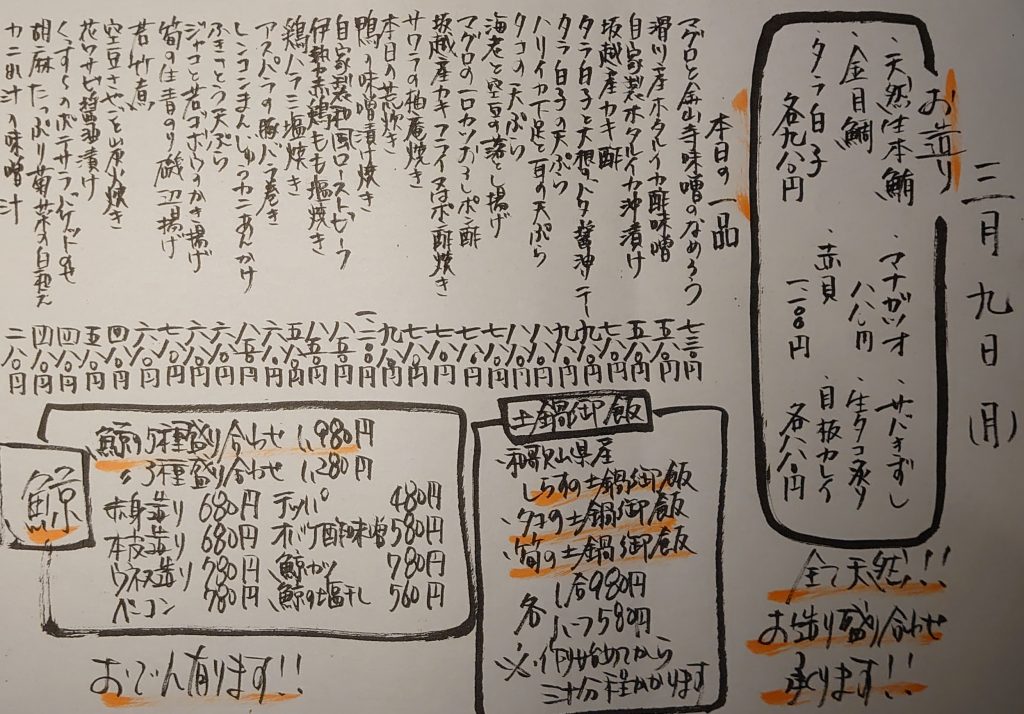 三月九日(月)
お造り
・天然生本鮪
・金目鯛
・タラ白子
各九八〇円
・マナガツオ
八八〇円
・赤貝
一二〇〇円
・サバきずし
・生タコ造り
・目板カレイ
各八八〇円
全て天然!!
お造り盛り合わせ
承ります!!
本日の一品
マグロと金山寺味噌のなめろう 七三〇円
滑川産ホタルイカ酢味噌 五八〇円
自家製ホタルイカ沖漬け 五八〇円
坂越産カキ酢 七八〇円
タラ白子と大根のバタ醤油ソテー 九八〇円
タラ白子の天ぷら 九八〇円
ハリイカ下足と百の天ぷら 八八〇円
タコの天ぷら 八八〇円
海老と空豆の落とし揚げ 七八〇円
マグロの一口カツおろしポン酢 七八〇円
坂越産カキフライ又はポン酢焼き 七八〇円
サワラの柚庵焼き 七八〇円
本日の荒炊き 九八〇円
鴨の味噌漬け焼き 一二〇〇円
自家製和風ローストビーフ 八五〇円
伊勢赤鶏もも塩焼き 八五〇円
鶏ハラミ塩焼き 五八〇円
アスパラの豚バラ巻き 六八〇円
レンコンまんじゅうカニあんかけ 八五〇円
ふきのとう天ぷら 六八〇円
ジャコと若ゴボウのかき揚げ 六八〇円
筍の生青のり磯辺揚げ 七八〇円
若竹煮 六八〇円
空豆さやごと山原水焼き 四八〇円
花ワサビ醤油漬け 五八〇円
くずし のポテサラ バゲット付き 四八〇円
胡麻たっぷり菊菜の白和え 四八〇円
カニ汁の味噌汁 二八〇円
土鍋御飯
・和歌山県産
しらすの土鍋御飯
・タコの土鍋御飯
・筍の土鍋御飯
各 1合980円
ハーフ580円
※作り始めてから
三十分程かかります
鯨
鯨の5種盛り合わせ 1,980円
〃3種盛り合わせ 1,280円
赤身造り 680円 テッパ 480円
本皮造り 680円 オバケ酢味噌 580円
ウネス造り 780円 鯨カツ 780円
ベーコン 780円 鯨の塩干し 560円
おでん有ります!!